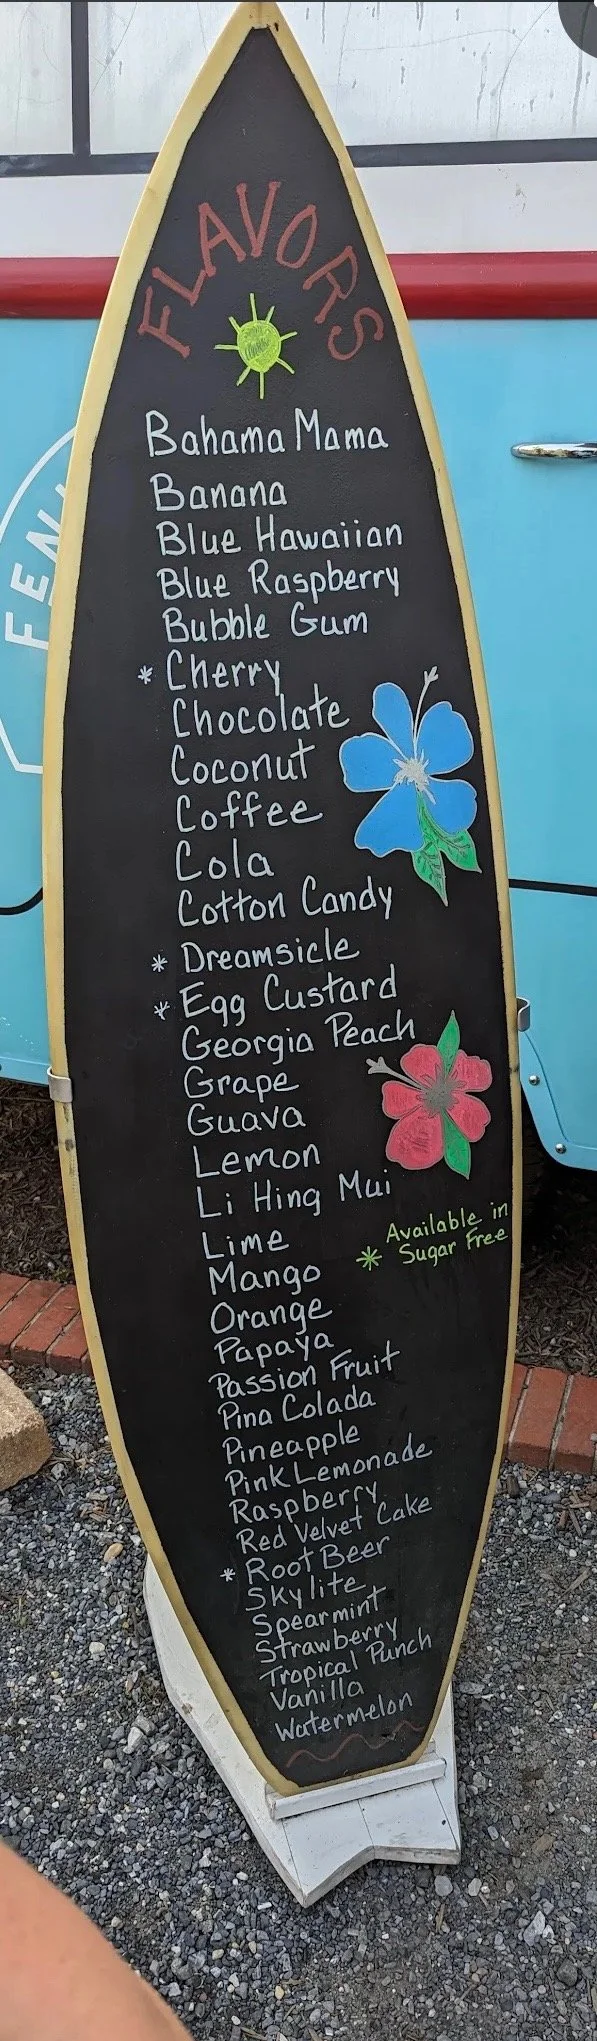 FLAVORS
Bahama Mama
Banana
Blue Hawaiian
Blue Raspberry
Bubble Gum
* Cherry
Chocolate
Coconut
Coffee
Cola
Cotton Candy
* Dreamsicle
* Egg Custard
Georgia Peach
Grape
Guava
Lemon
Li Hing Mui
Lime
Mango
Orange
Papaya
Passion Fruit
Pina Colada
Pineapple
Pink Lemonade
Raspberry
Red Velvet Cake
* Root Beer
Skylite
Spearmint
Strawberry
Tropical Punch
Vanilla
Watermelon
* Available in
Sugar Free